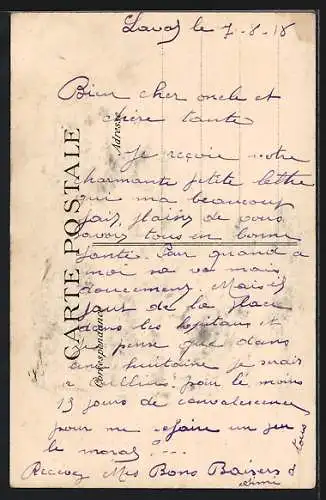 Laval le 7-8-18
Bien cher oncle et
chère tante
Je reçois votre
charmante petite lettre
qui ma beaucoup
fais plaisir de vous
savoir tous en bonne
santé. Pour quand a
moi sa va mais
doucement. Mais il
faut de la place
dans les hopitaux et
je pense que dans
une huitaine je serais
a pour le moins
15 jours de convalescence
pour me refaire un peu
le moral ....
Recevez Mes Bons Baisers à
tous
CARTE POSTALE
Correspondance
Adresse